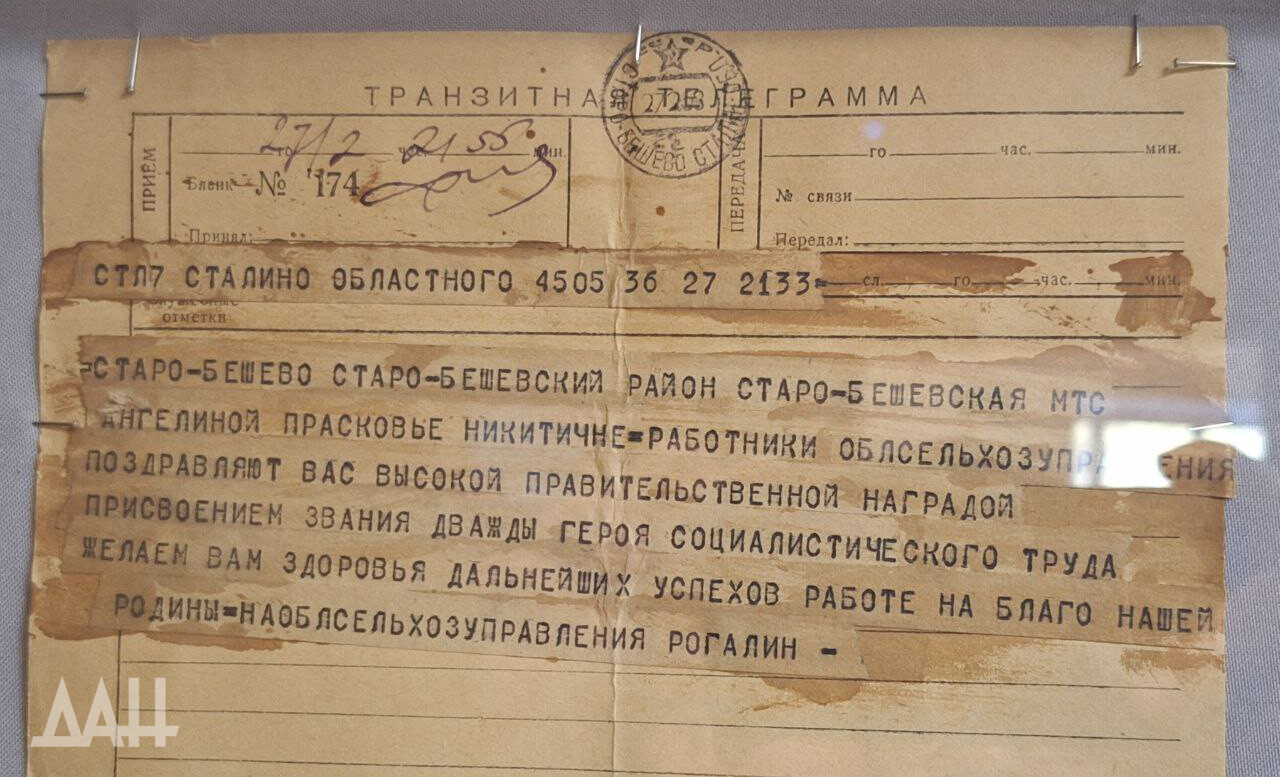 ТРАНЗИТНАЯ ТЕЛЕГРАММА
СТАРО-БЕШЕВО СТАЛИН
ПРИЁМ
27/2 го час. 21 55 мин.
Бланк № 174
Принял:
ПЕРЕДАЧА
го час. мин.
№ связи
Передал:
СТЛ7 СТАЛИНО ОБЛАСТНОГО 4505 36 27 2133= сл. го час. мин.
Служебные
отметки
=СТАРО-БЕШЕВО СТАРО-БЕШЕВСКИЙ РАЙОН СТАРО-БЕШЕВСКАЯ МТС
АНГЕЛИНОЙ ПРАСКОВЬЕ НИКИТИЧНЕ=РАБОТНИКИ ОБЛСЕЛЬХОЗУПРАВЛЕНИЯ
ПОЗДРАВЛЯЮТ ВАС ВЫСОКОЙ ПРАВИТЕЛЬСТВЕННОЙ НАГРАДОЙ
ПРИСВОЕНИЕМ ЗВАНИЯ ДВАЖДЫ ГЕРОЯ СОЦИАЛИСТИЧЕСКОГО ТРУДА
ЖЕЛАЕМ ВАМ ЗДОРОВЬЯ ДАЛЬНЕЙШИХ УСПЕХОВ РАБОТЕ НА БЛАГО НАШЕЙ
РОДИНЫ=НАОБЛСЕЛЬХОЗУПРАВЛЕНИЯ РОГАЛИН -
ДАН